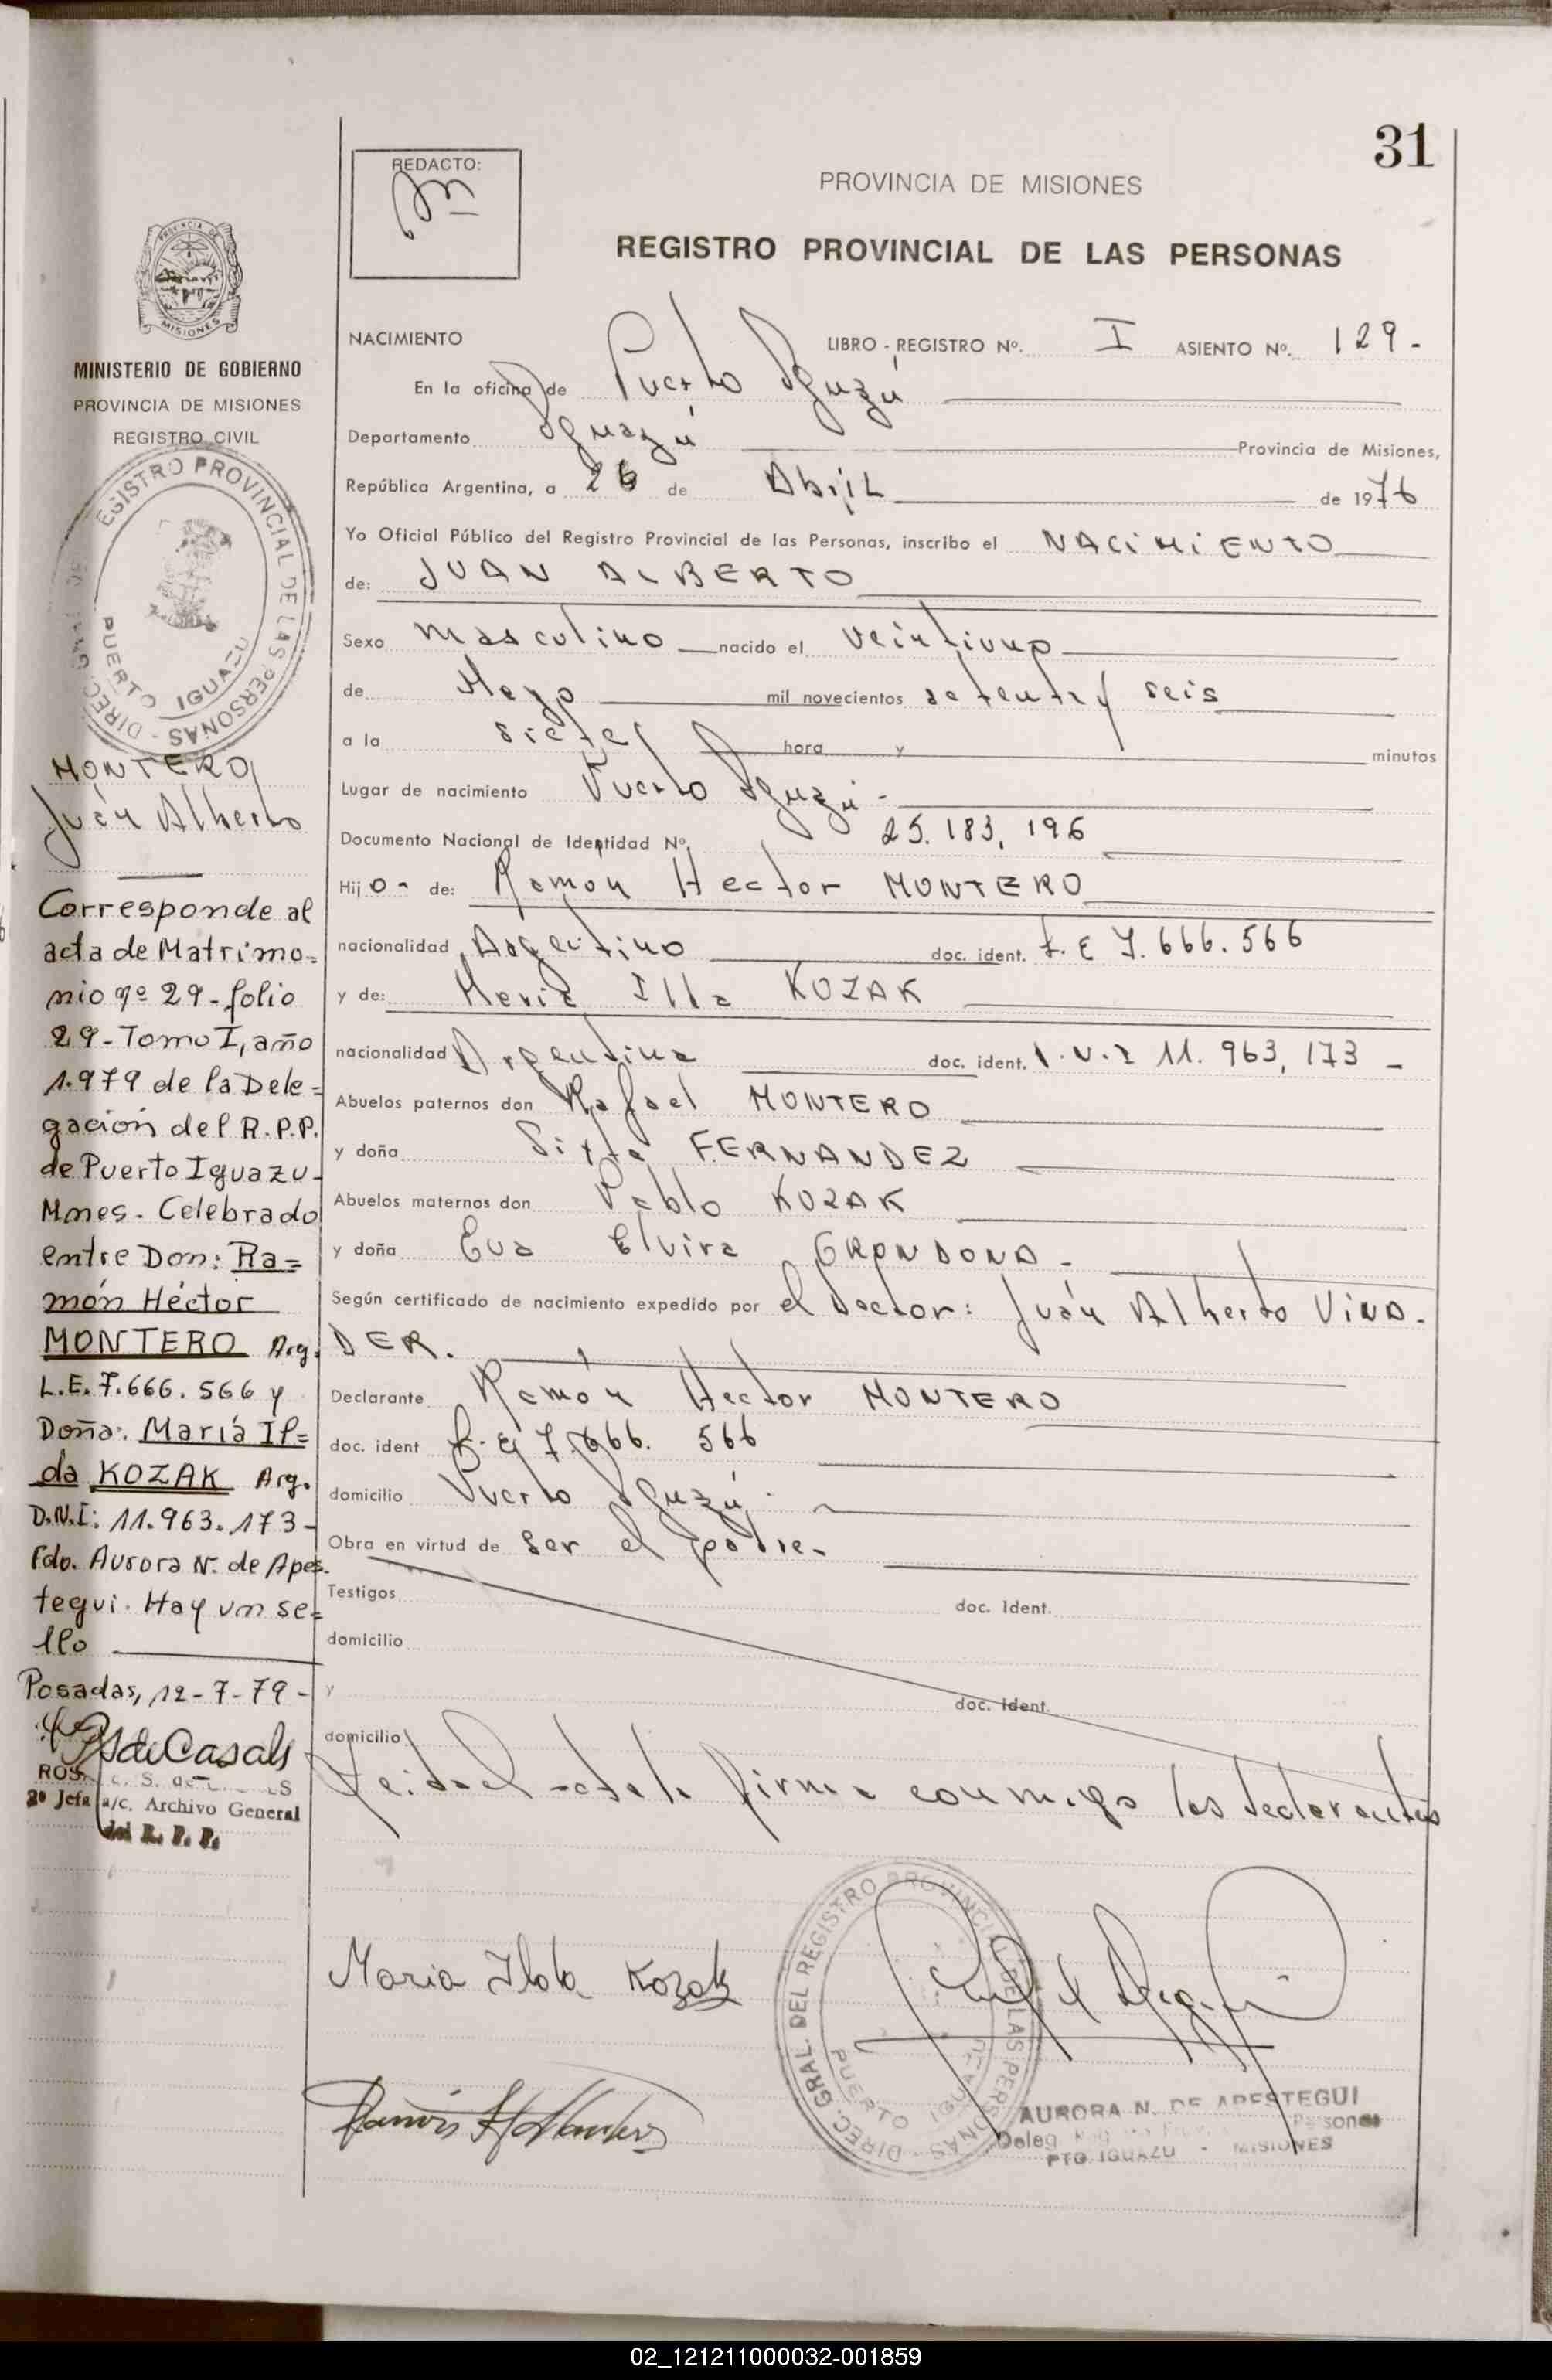 31
REDACTO:
PROVINCIA DE MISIONES
REGISTRO PROVINCIAL DE LAS PERSONAS
NACIMIENTO LIBRO - REGISTRO Nº. I ASIENTO Nº. 129.-
En la oficina de Puerto Iguazú
Departamento Iguazú Provincia de Misiones,
República Argentina, a 26 de Abril de 1976
Yo Oficial Público del Registro Provincial de las Personas, inscribo el NACIMIENTO
de: JUAN ALBERTO
Sexo masculino nacido el veintiuno
de Mayo mil novecientos setenta y seis
a la siete hora y minutos
Lugar de nacimiento Puerto Iguazú -
Documento Nacional de Identidad Nº. 25.183,196
Hijo - de: Ramon Hector MONTERO
nacionalidad Argentino doc. ident. L.E 7.666.566
y de: Maria Ilda KOZAK
nacionalidad Argentina doc. ident. 11.963,173 -
Abuelos paternos don Rafael MONTERO
y doña Sixta FERNANDEZ
Abuelos maternos don Pablo KOZAK
y doña Eva Elvira GRONDONA -
Según certificado de nacimiento expedido por el Doctor: Juan Alberto VINA-
DER.
Declarante Ramón Hector MONTERO
doc. ident L.E 7.666.566
domicilio Puerto Iguazú
Obra en virtud de ser el padre-
Testigos doc. ident.
domicilio
y doc. ident.
domicilio
Leida el acta la firma conmigo los declarantes
Maria Ilda Kozak
AURORA N. DE APESTEGUI
PTO. IGUAZU - MISIONES
DIREC. GRAL. DEL REGISTRO PROVINCIAL DE LAS PERSONAS
PUERTO IGUAZU
PROVINCIA DE
MISIONES
MINISTERIO DE GOBIERNO
PROVINCIA DE MISIONES
REGISTRO CIVIL
REGISTRO PROVINCIAL DE LAS PERSONAS - DIREC. GRAL.
PUERTO IGUAZU
MONTERO
Juan Alberto
Corresponde al
acta de Matrimo=
nio nº 29 - folio
29 - Tomo I, año
1.979 de la Dele=
gación del R.P.P.
de Puerto Iguazu-
Mnes. Celebrado
entre Don: Ra=
món Héctor
MONTERO Arg.
L.E. 7.666.566 y
Doña: María Il=
da KOZAK Arg.
D.N.I: 11.963.173-
Fdo. Aurora N. de Apes-
tegui. Hay un se=
llo
Posadas, 12-7-79-
S. de Casals
2º Jefa a/c. Archivo General
del R. P. P.
02_121211000032-001859